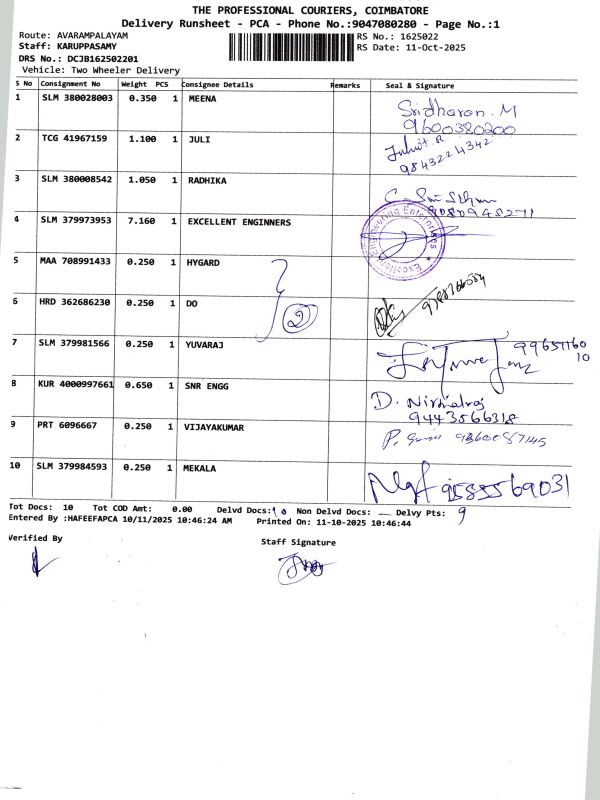 THE PROFESSIONAL COURIERS, COIMBATORE
Delivery Runsheet - PCA - Phone No.:9047080280 - Page No.:1
Route: AVARAMPALAYAM RS No.: 1625022
Staff: KARUPPASAMY RS Date: 11-Oct-2025
DRS No.: DCJB162502201
Vehicle: Two Wheeler Delivery
S No Consignment No Weight PCS Consignee Details Remarks Seal & Signature
1 SLM 380028003 0.350 1 MEENA Sridharan. M
9600380200
2 TCG 41967159 1.100 1 JULI
9843224342
3 SLM 380008542 1.050 1 RADHIKA
4 SLM 379973953 7.160 1 EXCELLENT ENGINNERS Excellent Engineering Enterprises
5 MAA 708991433 0.250 1 HYGARD
6 HRD 362686230 0.250 1 DO 2
7 SLM 379981566 0.250 1 YUVARAJ 99651160
10
8 KUR 4000997661 0.650 1 SNR ENGG D. Nirmalraj
9443566318
9 PRT 6096667 0.250 1 VIJAYAKUMAR 9360087145
10 SLM 379984593 0.250 1 MEKALA 9585569031
Tot Docs: 10 Tot COD Amt: 0.00 Delvd Docs: 10 Non Delvd Docs: — Delvy Pts: 9
Entered By :HAFEEFAPCA 10/11/2025 10:46:24 AM Printed On: 11-10-2025 10:46:44
Verified By Staff Signature